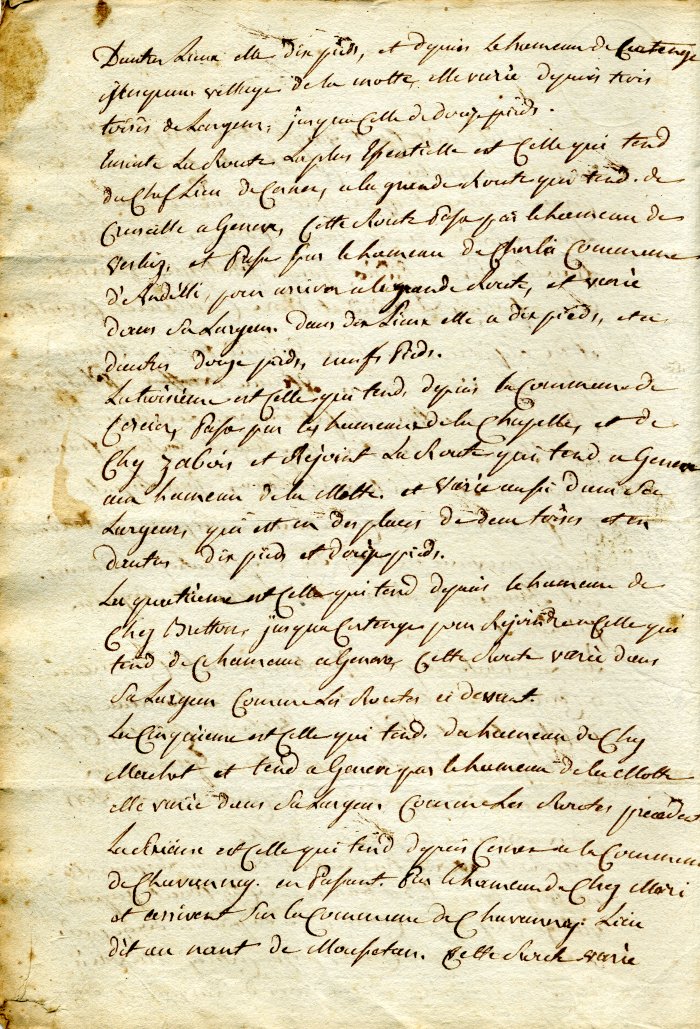 Dautres Lieux elle dix pieds, et depuis le hameau de Cortenge
jusquau village de la motte, elle varie depuis trois
toises de Largeur, jusqua Celle de douze pieds.
Ensuite La Route La plus Essentielle est Celle qui tend
du Chef Lieu de Cernex, a la grande Route qui tend de
Cruseille a Geneve, Cette Route Passe par le hameau de
Verlioz, et Passe par le hameau de Charlia Commune
d'Andilli, pour arriver a la grande Route, et varie
dans Sa Largeur. dans dix Lieux elle a dix pieds, et a
dautres douze pieds, neufs Pieds.
La troisieme est Celle qui tend depuis la Commune de
Cercier, Passe par les hameaux de la Chapelle, et de
Chez zabois et Rejoint La Route qui tend a Geneve
au hameau de la Motte. et Varie aussi dans Sa
Largeur, qui est en des places de deux toises et en
dautres dix pieds et douze pieds.
La quatrieme est Celle qui tend depuis le hameau de
Chez Bretton, jusqua Cortenge pour Rejoindre a Celle qui
tend de Ce hameau a Geneve, Cette Route varie dans
Sa Largeur Comme Les Routes ci devant.
La Cinquieme est Celle qui tends du hameau de Chez
Machet et tend a Geneve par le hameau de la Motte
elle varie dans Sa Largeur Comme Les Routes précédent
La Sixieme est Celle qui tend depuis Cernex a la Commune
de Chavannaz. en Passant Par le hameau de Chez Mori
et arrivent Sur la Commune de Chavannaz. Lieu
dit au nant de Moupetan. Cette Route varie